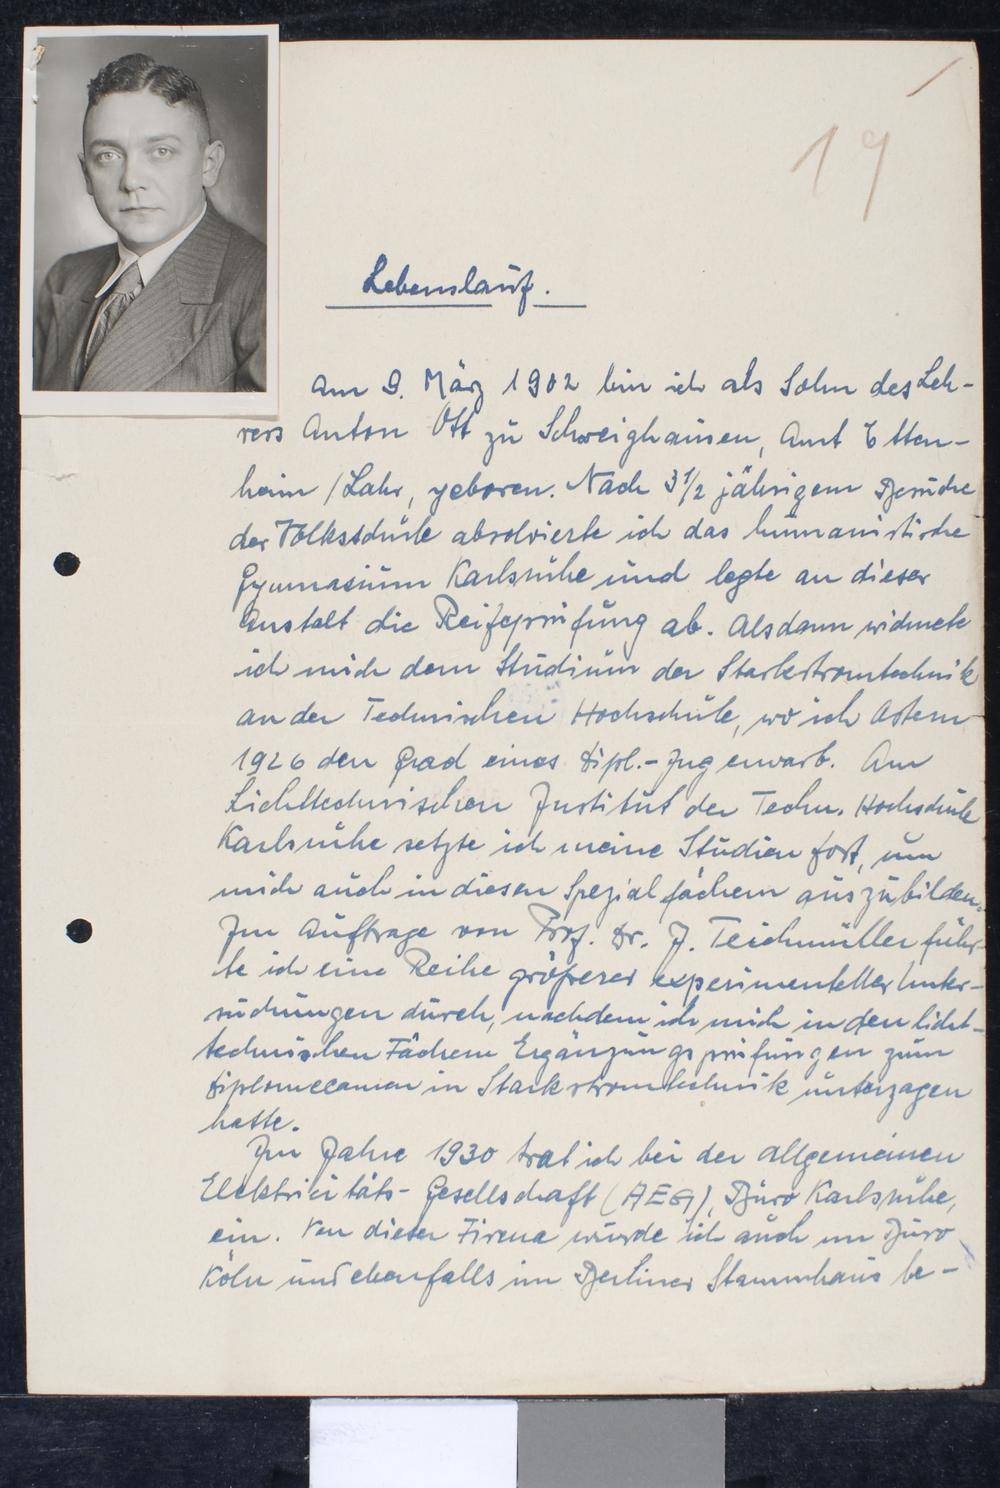 19
Lebenslauf.
Am 9. März 1902 bin ich als Sohn des Leh-
rers Anton Ott zu Schweighausen, Amt Etten-
heim / Lahr, geboren. Nach 3½ jährigem Besuche
der Volksschule absolvierte ich das humanistische
Gymnasium Karlsruhe und legte an dieser
Anstalt die Reifeprüfung ab. Alsdann widmete
ich mich dem Studium der Starkstromtechnik
an der Technischen Hochschule, wo ich Ostern
1926 den Grad eines Dipl.-Ing erwarb. Am
Lichttechnischen Institut der Techn. Hochschule
Karlsruhe setzte ich meine Studien fort, um
mich auch in diesen Spezialfächern auszubilden.
Im Auftrage von Prof. Dr. J. Teichmüller führ-
te ich eine Reihe größerer experimenteller Unter-
suchungen durch, nachdem ich mich in den licht-
technischen Fächern Ergänzungsprüfungen zum
Diplomexamen in Starkstromtechnik unterzogen
hatte.
Im Jahre 1930 trat ich bei der allgemeinen
Elektricitäts-Gesellschaft (AEG), Büro Karlsruhe,
ein. Von dieser Firma wurde ich auch im Büro
Köln und ebenfalls im Berliner Stammhaus be-